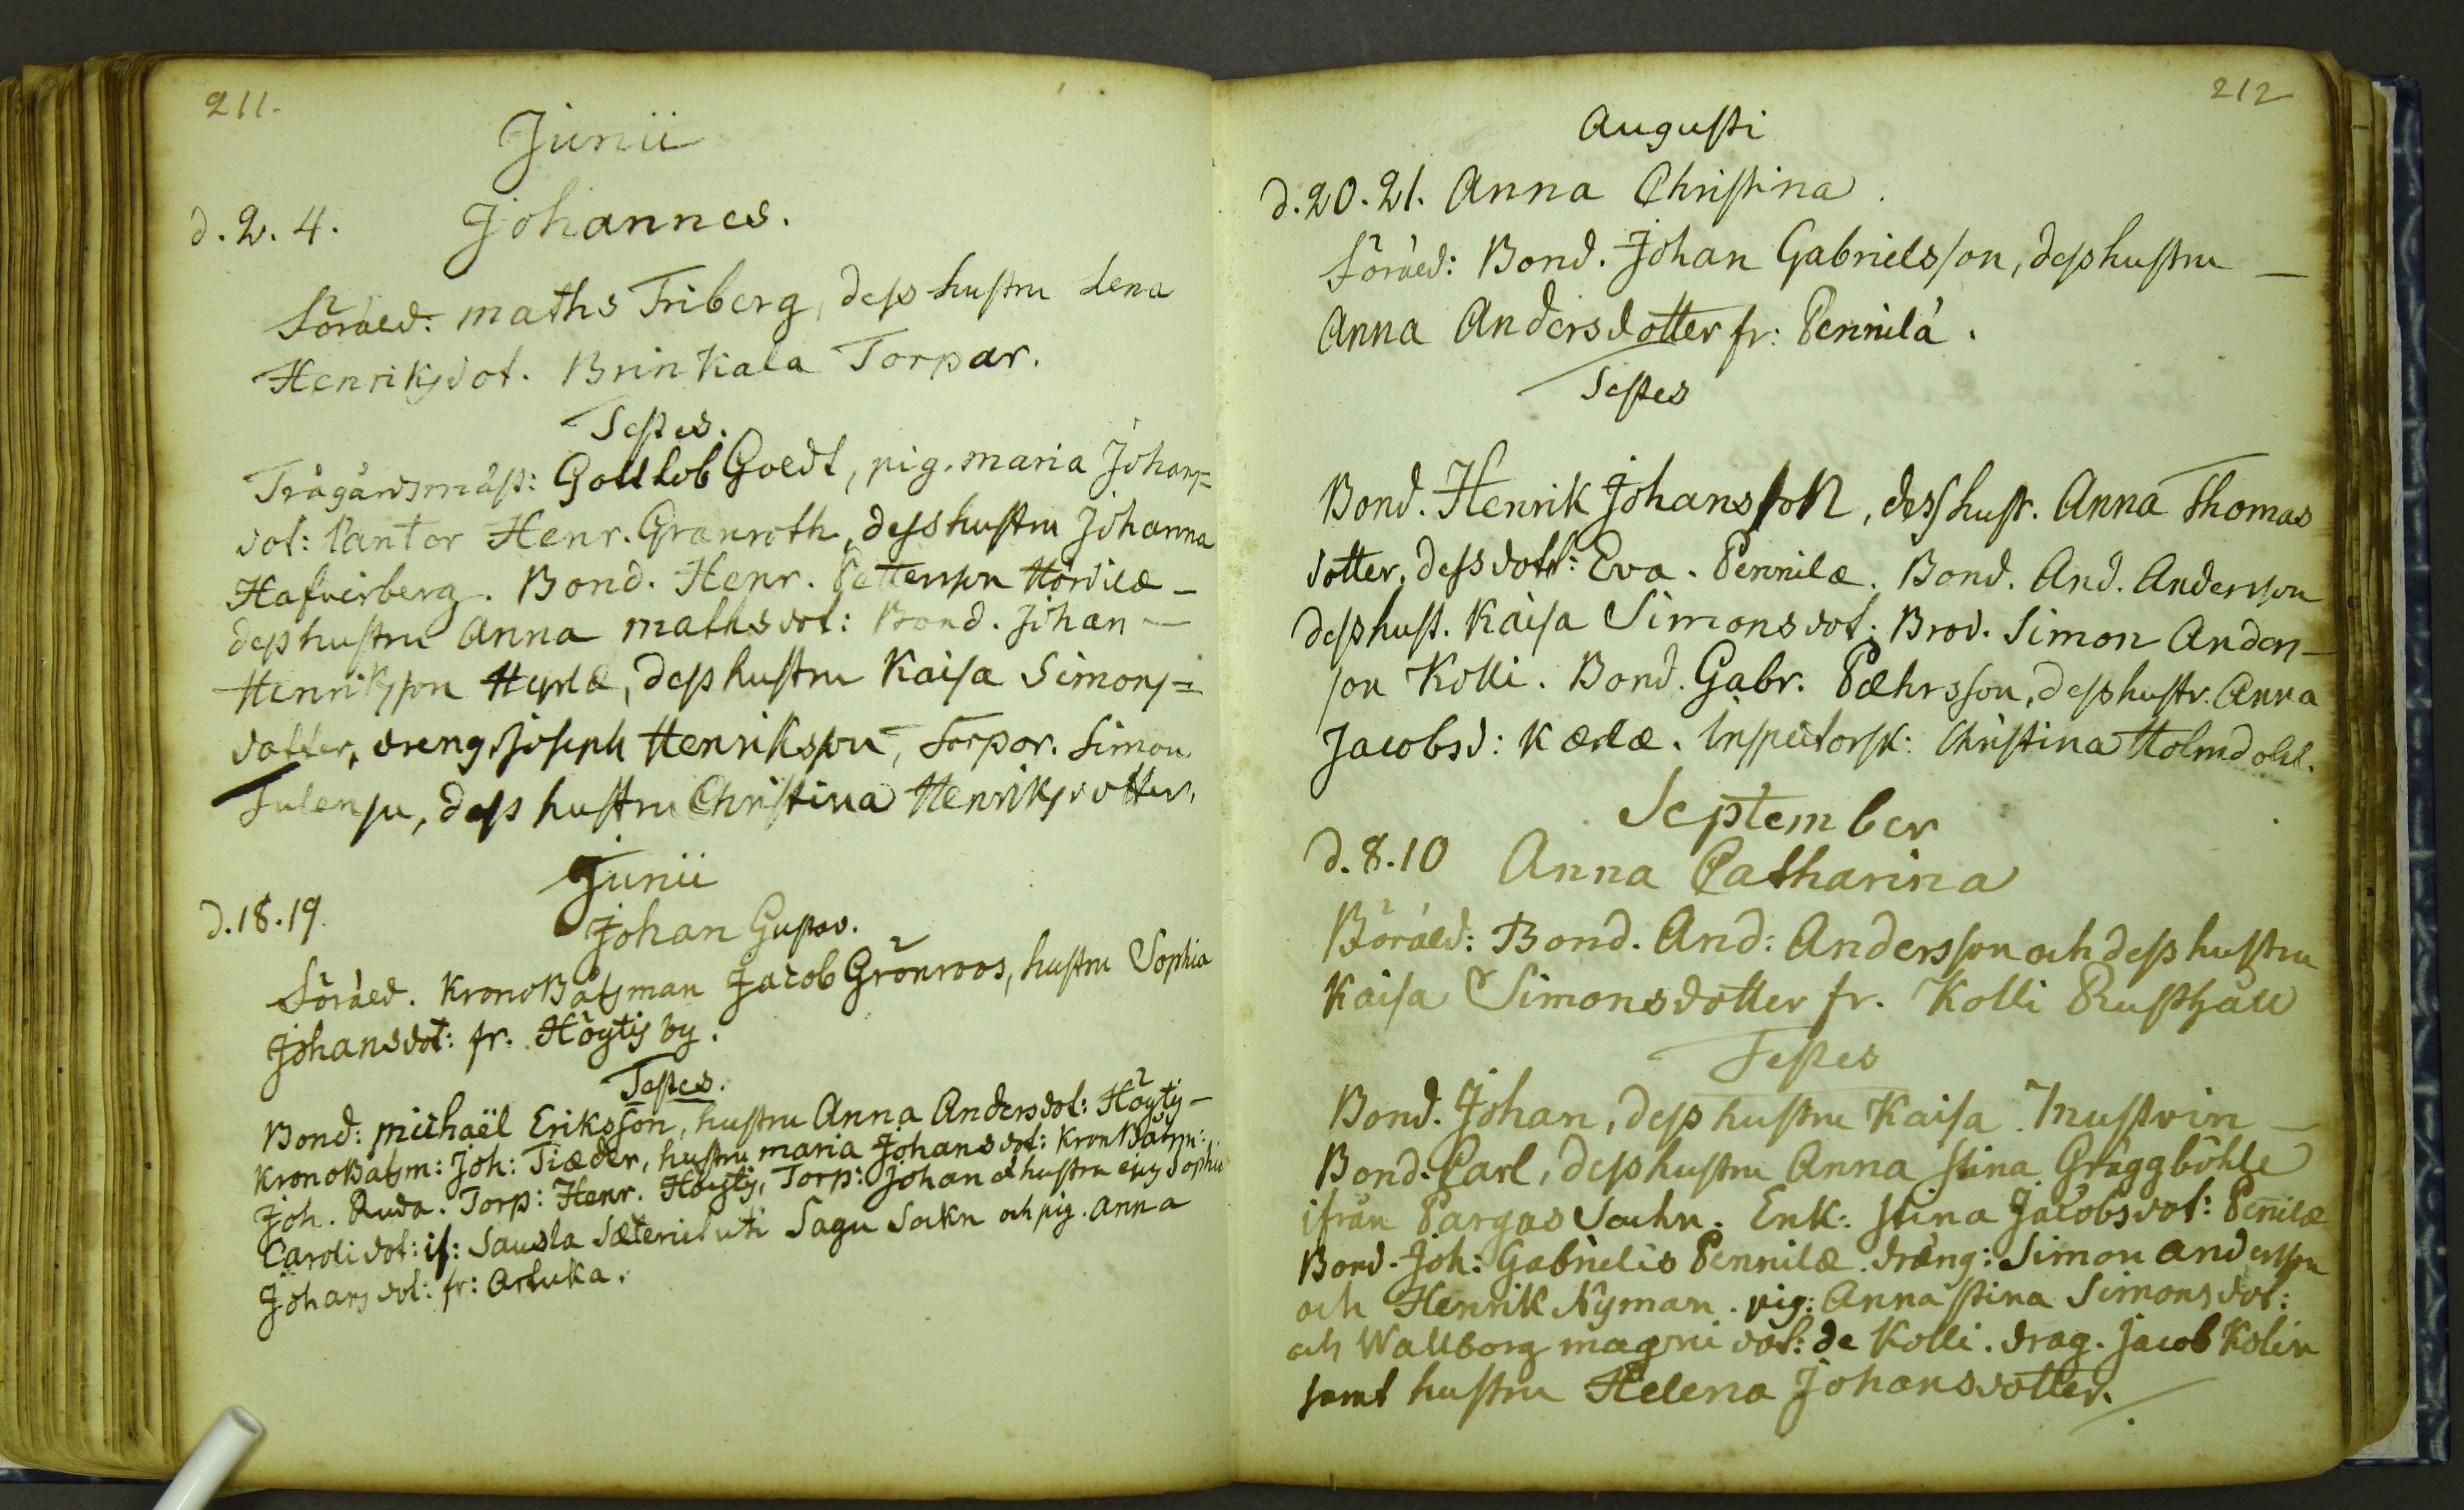 211.
Junii
d. 2. 4. Johannes.
Föräld: Maths Friberg, dess hustru Lena
Henriksdot. Brinkala Torpar.
Testes.
Trägårdsmäst: Gottlob Goldt, pig. Maria Johans=
dot: Cantor Henr. Granroth, dess hustru Johanna
Hafverberg. Bond. Henr. Pettersson Hördilæ –
dess hustru Anna Mathsdot: Bond. Johan –
Henriksson Heyrlæ, dess hustru Kaisa Simons=
dotter, dreng. Joseph Henriksson, Torpar. Simon
dess hustru Christina Henriksdotter.
Junii
d. 18. 19.
Johan Gustav.
Föräld. KronoBåtsman Jacob Grönroos, hustru Sophia
Johansdot: fr. Höytis by.
Testes.
Bond: Michaël Eriksson, hustru Anna Andersdot: Höytis –
KronoBåtsm: Joh: Tiæder, hustru Maria Johansdot: KronBåtsm:
Joh. Ruda. Torp: Henr. Höytis, Torp: Johan et hustru ejus Sophia
Carolidot: if: Sausla Sæteri uti Sagu Sockn och pig. Anna
Johansdot: fr: Artuka.
212
Augusti
d. 20. 21. Anna Christina.
Föräld: Bond. Johan Gabrielsson, dess hustru –
Anna Andersdotter fr: Pennilä.
Testes
Bond. Henrik Johansson, dess hust. Anna Thomas
dotter, dess dott: Eva. Pennilæ. Bond. And. Andersson
dess hust. Kaisa Simonsdot: Brod. Simon Anders–
son Kolli. Bond. Gabr. Pæhrsson, dess hustr. Anna
Jacobsd: Kærlæ. Inspectorsk: Christina Holmdahl.
September
d. 8. 10 Anna Catharina
Böräld: Bond. And: Andersson och dess hustru
Kaisa Simonsdotter fr. Kolli Rusthåll
Testes
Bond. Johan, dess hustru Kaisa. Mustvin –
Bond. Carl, dess hustru Anna Stina Gräggböhle
ifrån Pargas Sochn. Enk: Stina Jacobsdot: Penilæ
Bond. Joh: Gabrielis Pennilæ. dräng: Simon Andersson
och Henrik Nyman. pig: Anna Stina Simonsdot:
och Wallborg Magnidot: de Kolli. drag. Jacob Kolin
samt hustru Helena Johansdotter.